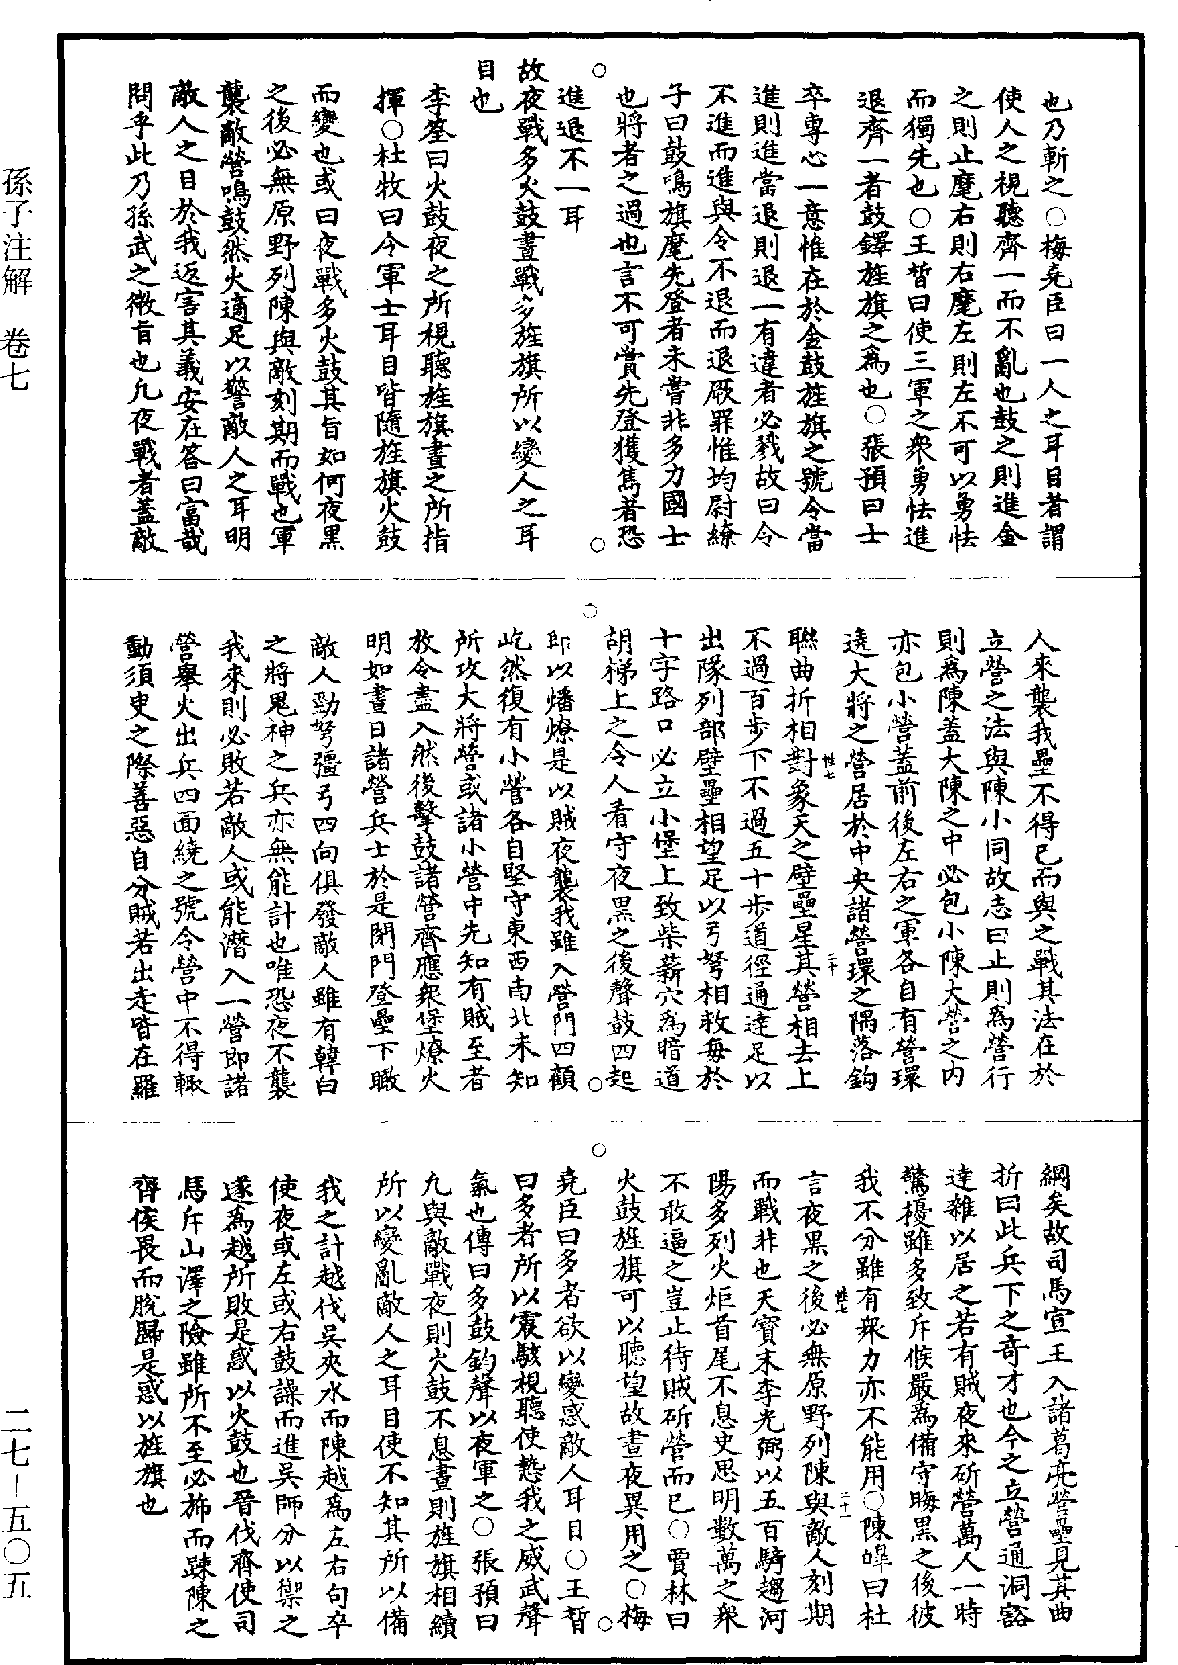 也乃斬之○梅堯臣曰一人之耳目者謂
使人之視聽齊一而不亂也鼓之則進金
之則止麾右則右麾左則左不可以勇怯
而獨先也○王晳曰使三軍之衆勇怯進
退齊一者鼓鐸旌旗之爲也○張預曰士
卒專心一意惟在於金鼓旌旗之號令當
進則進當退則退一有違者必戮故曰令
不進而進與令不退而退厥罪惟均尉繚
子曰鼓鳴旗麾先登者未嘗非多力國士
也將者之過也言不可賞先登獲雋者恐
進退不一耳
故夜戰多火鼓晝戰多旌旗所以變人之耳
目也
李筌曰火鼓夜之所視聽旌旗晝之所指
揮○杜牧曰令軍士耳目皆隨旌旗火鼓
而變也或曰夜戰多火鼓其旨如何夜黑
之後必無原野列陳與敵刻期而戰也軍
襲敵營鳴鼓然火適足以警敵人之耳明
敵人之目於我返害其義安在答曰富哉
問乎此乃孫武之微旨也凡夜戰者蓋敵
人來襲我壘不得已而與之戰其法在於
立營之法與陳小同故志曰止則爲營行
則爲陳蓋大陳之中必包小陳大營之內
亦包小營蓋前後左右之軍各自有營環
遶大將之營居於中央諸營環之隅落鈎
聯曲折相對象天之壁壘星其營相去上
不過百步下不過五十步道徑通達足以
出隊列部壁壘相望足以弓弩相救每於
十字路口必立小堡上致柴薪穴爲暗道
胡梯上之令人看守夜黑之後聲鼓四起
即以燔燎是以賊夜襲我雖入營門四顧
屹然復有小營各自堅守東西南北未知
所攻大將營或諸小營中先知有賊至者
放令盡入然後擊鼓諸營齊應衆堡燎火
明如晝日諸營兵士於是閉門登壘下瞰
敵人勁弩彊弓四向俱發敵人雖有韓白
之將鬼神之兵亦無能計也唯恐夜不襲
我來則必敗若敵人或能潛入一營即諸
營舉火出兵四面繞之號令營中不得輒
動須臾之際善惡自分賊若出走皆在羅
網矣故司馬宣王入諸葛亮營壘見其曲
折曰此兵下之奇才也今之立營通洞豁
達雜以居之若有賊夜來斫營萬人一時
驚擾雖多致斥候嚴爲備守晦黑之後彼
我不分雖有衆力亦不能用○陳皥曰杜
言夜黑之後必無原野列陳與敵人刻期
而戰非也天寶末李光弼以五百騎趨河
陽多列火炬首尾不息史思明數萬之衆
不敢逼之豈止待賊斫營而已○賈林曰
火鼓旌旗可以聽望故晝夜異用之○梅
堯臣曰多者欲以變惑敵人耳目○王晳
曰多者所以震駭視聽使慹我之威武聲
氣也傳曰多鼓鈞聲以夜軍之○張預曰
凡與敵戰夜則火鼓不息晝則旌旗相續
所以變亂敵人之耳目使不知其所以備
我之計越伐吳夾水而陳越爲左右句卒
使夜或左或右鼓譟而進吳師分以禦之
遂爲越所敗是惑以火鼓也晉伐齊使司
馬斥山澤之險雖所不至必斾而踈陳之
齊侯畏而脫歸是惑以旌旗也
孫子注解 卷七
二七－五〇五